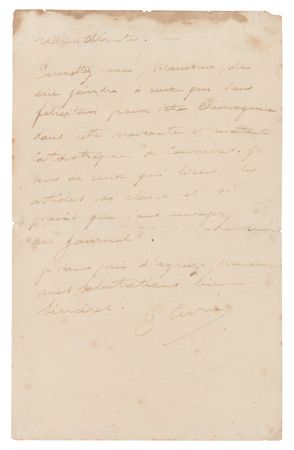 radioactivité. —
Permettez-moi, Monsieur, de
me joindre à ceux qui vous
félicitent pour votre Clairvoyance
dans cette navrante et
catastrophe de Courrières. Je
suis de ceux qui lisent les
articles si clairs et si
précis que vous envoyez
"au Journal".
je vous prie d'agréer, monsieur
mes salutations bien
sincères.
P. Curie